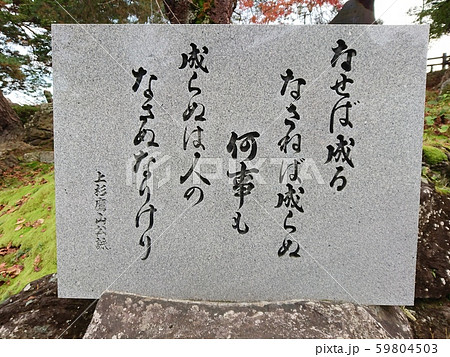 なせば成る
なさねば成らぬ
何事も
成らぬは人の
なさぬなりけり
上杉鷹山公詠
PIXTA
pixta.jp - 59804503